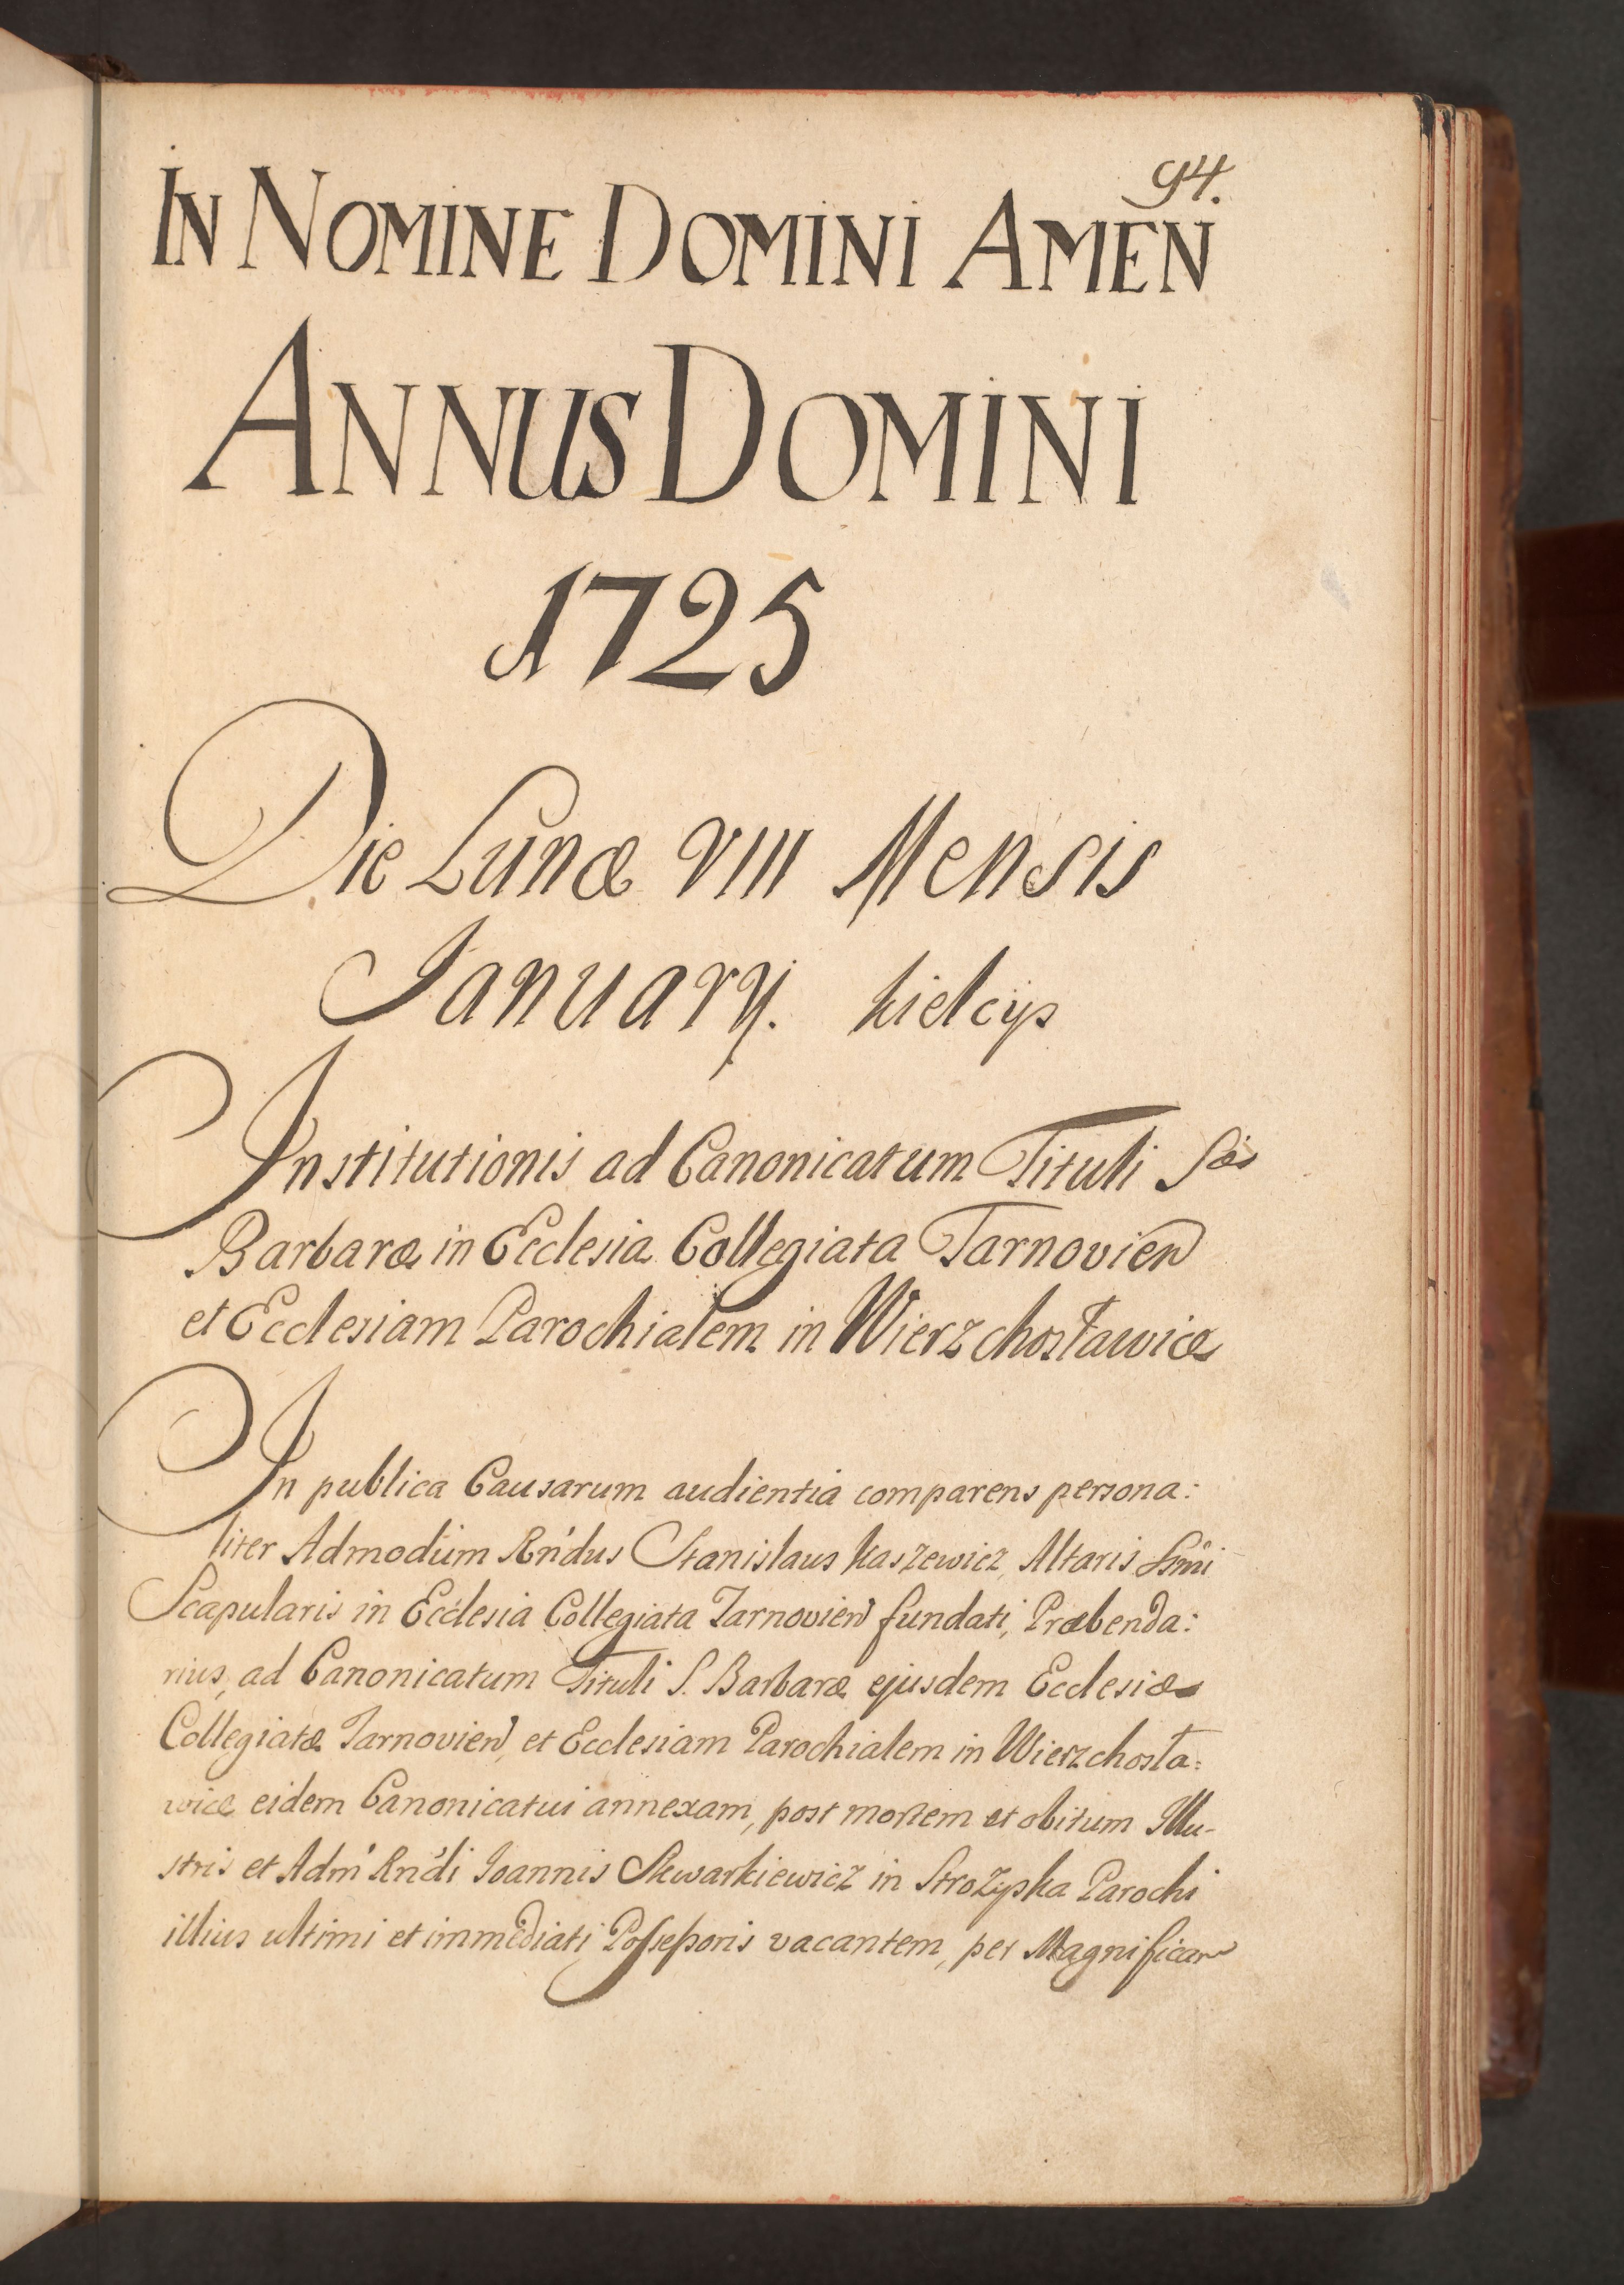 94.
IN NOMINE DOMINI AMEN
ANNUS DOMINI
1725
Die Lunæ VIII Mensis
January. Kielcijs
Institutionis ad Canonicatum Tituli Sæ
Barbaræ in Ecclesia Collegiata Tarnovien
et Ecclesiam Parochialem in Wierzchosławice
In publica Causarum audientia comparens persona:
liter Admodum Rndus Stanislaus Kaszewicz, Altaris Ssmi
Scapularis in Ecclesia Collegiata Tarnovien fundati, Præbenda:
rius, ad Canonicatum Tituli S. Barbaræ ejusdem Ecclesiæ
Collegiatæ Tarnovien, et Ecclesiam Parochialem in Wierzchosła:
wice eidem Canonicatui annexam, post mortem et obitum Illu-
stris et Adm Rndi Joannis Skwarkiewicz in Strożyska Parochi
illius ultimi et immediati Possessoris vacantem, per Magnificam